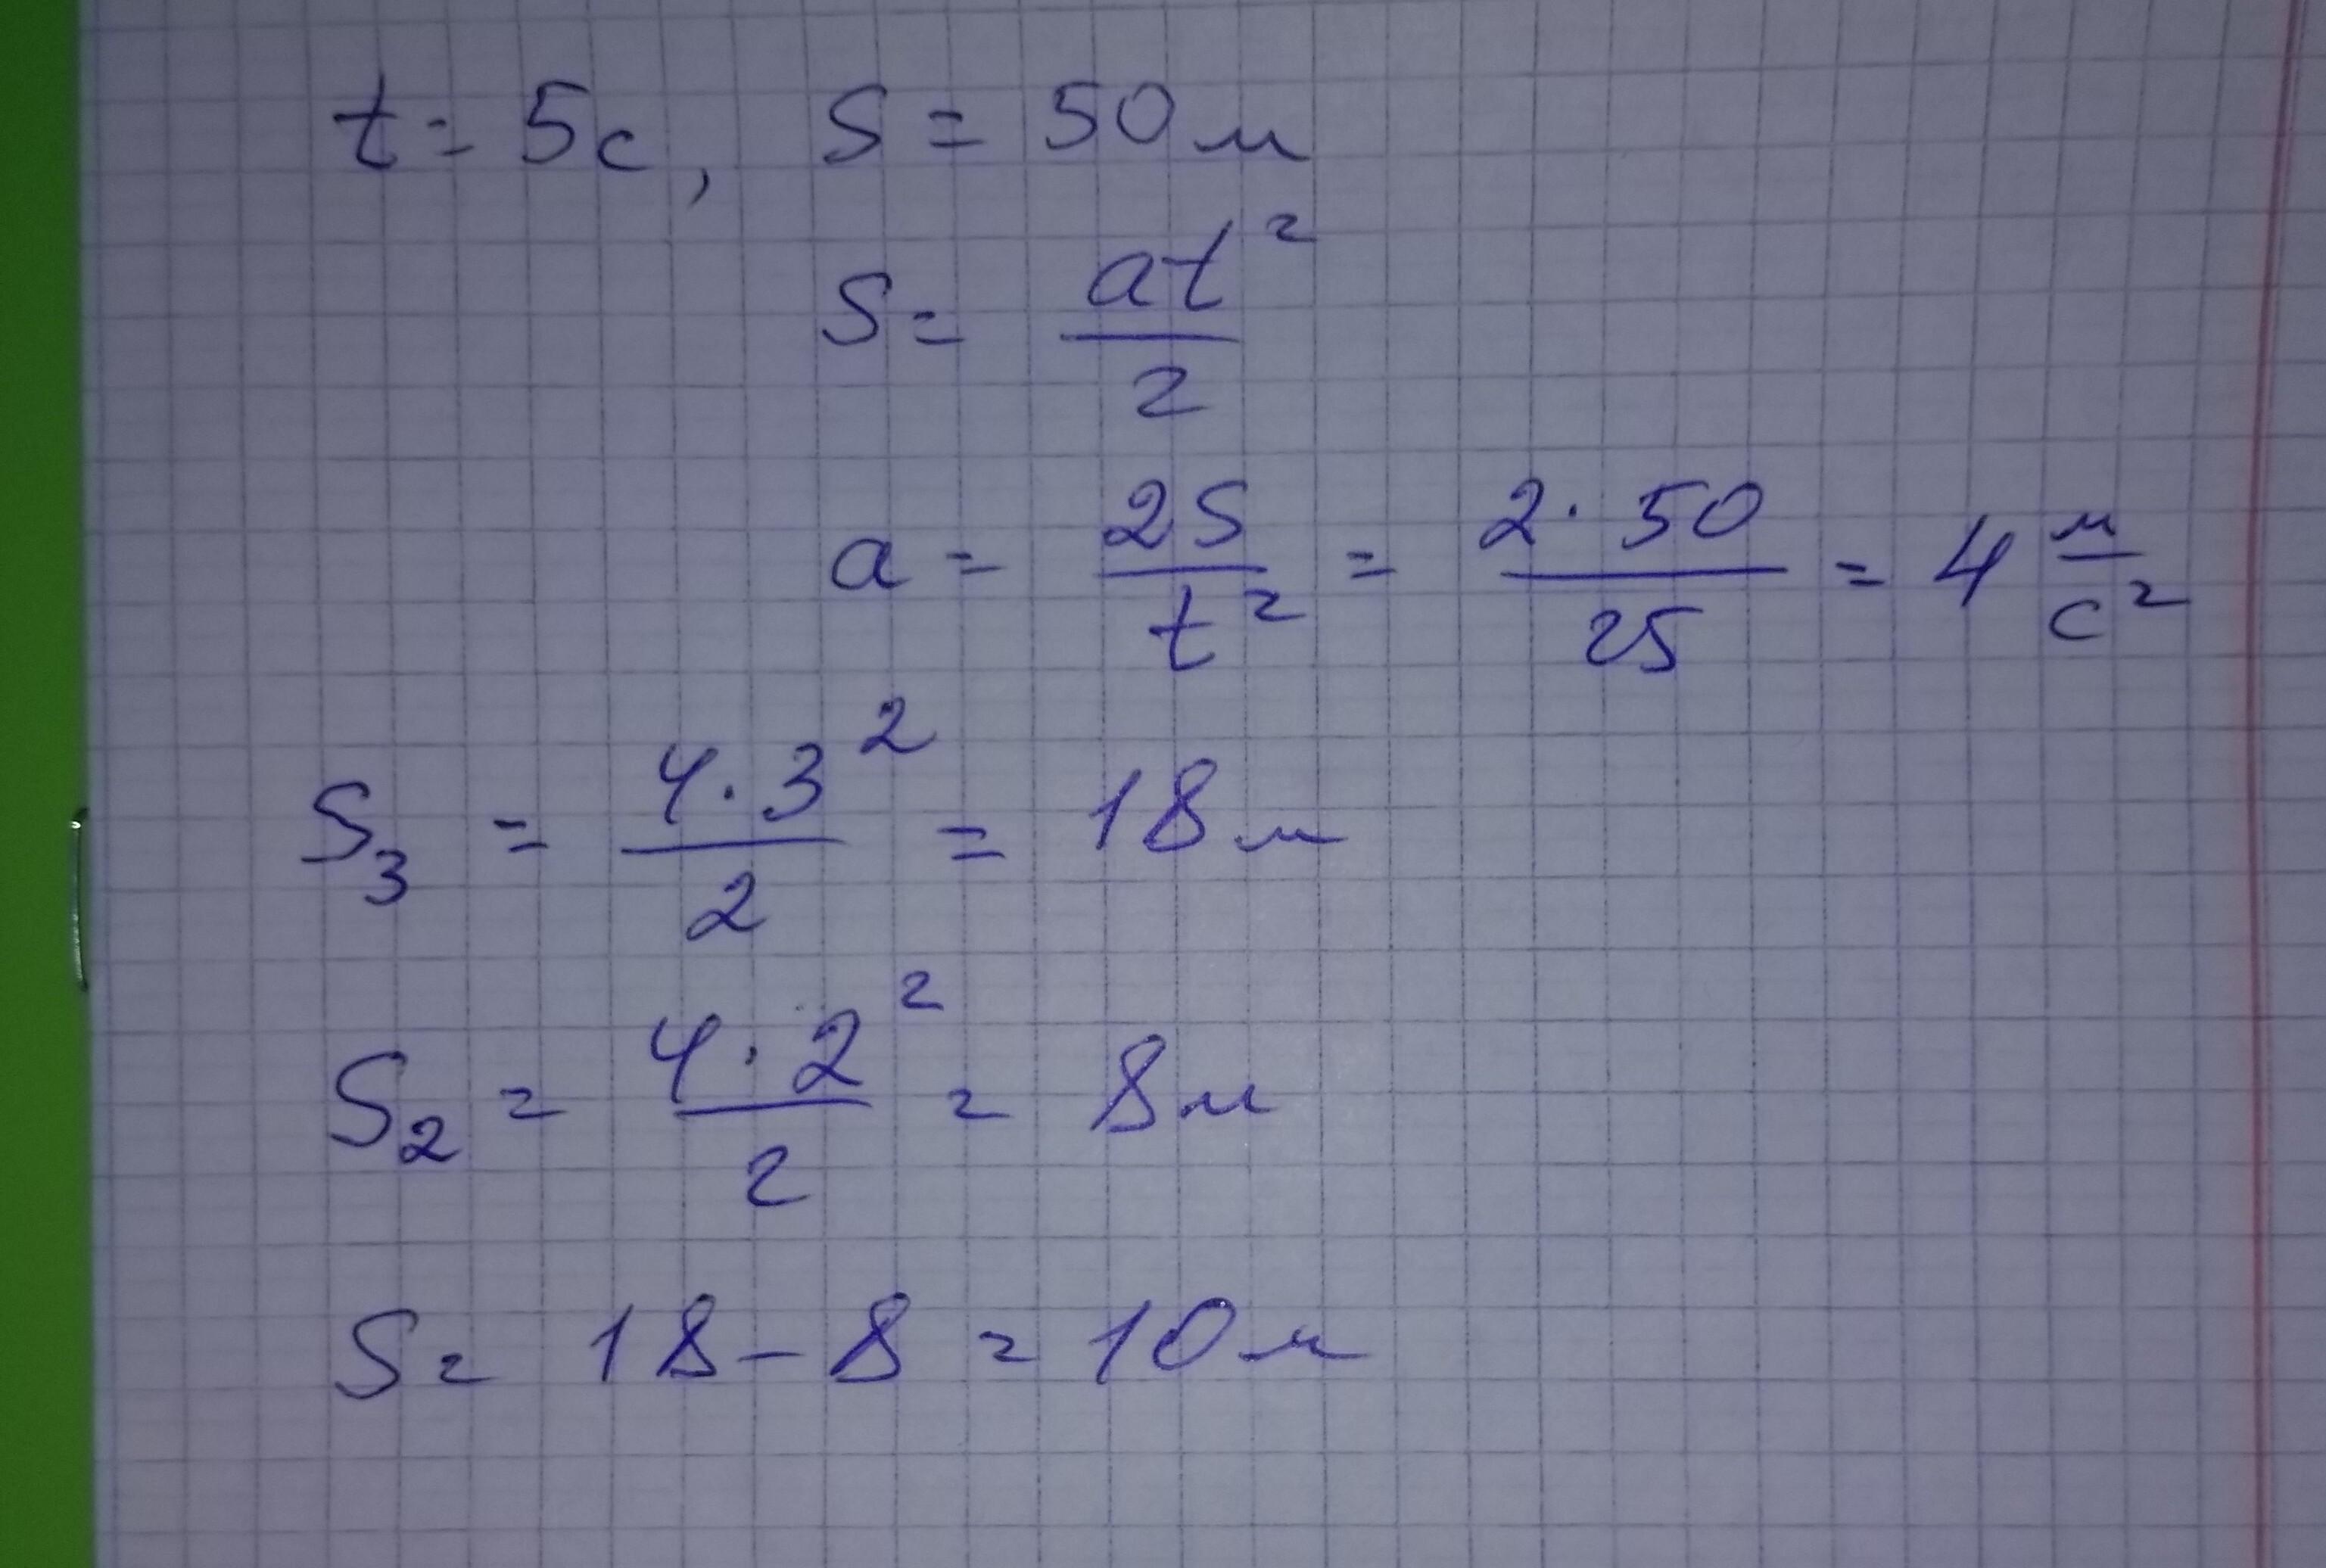 t = 5с, S = 50 м
S = at²/2
a = 2S/t² = 2·50/25 = 4 м/с²
S₃ = 4·3²/2 = 18 м
S₂ = 4·2²/2 = 8 м
S = 18 – 8 = 10 м